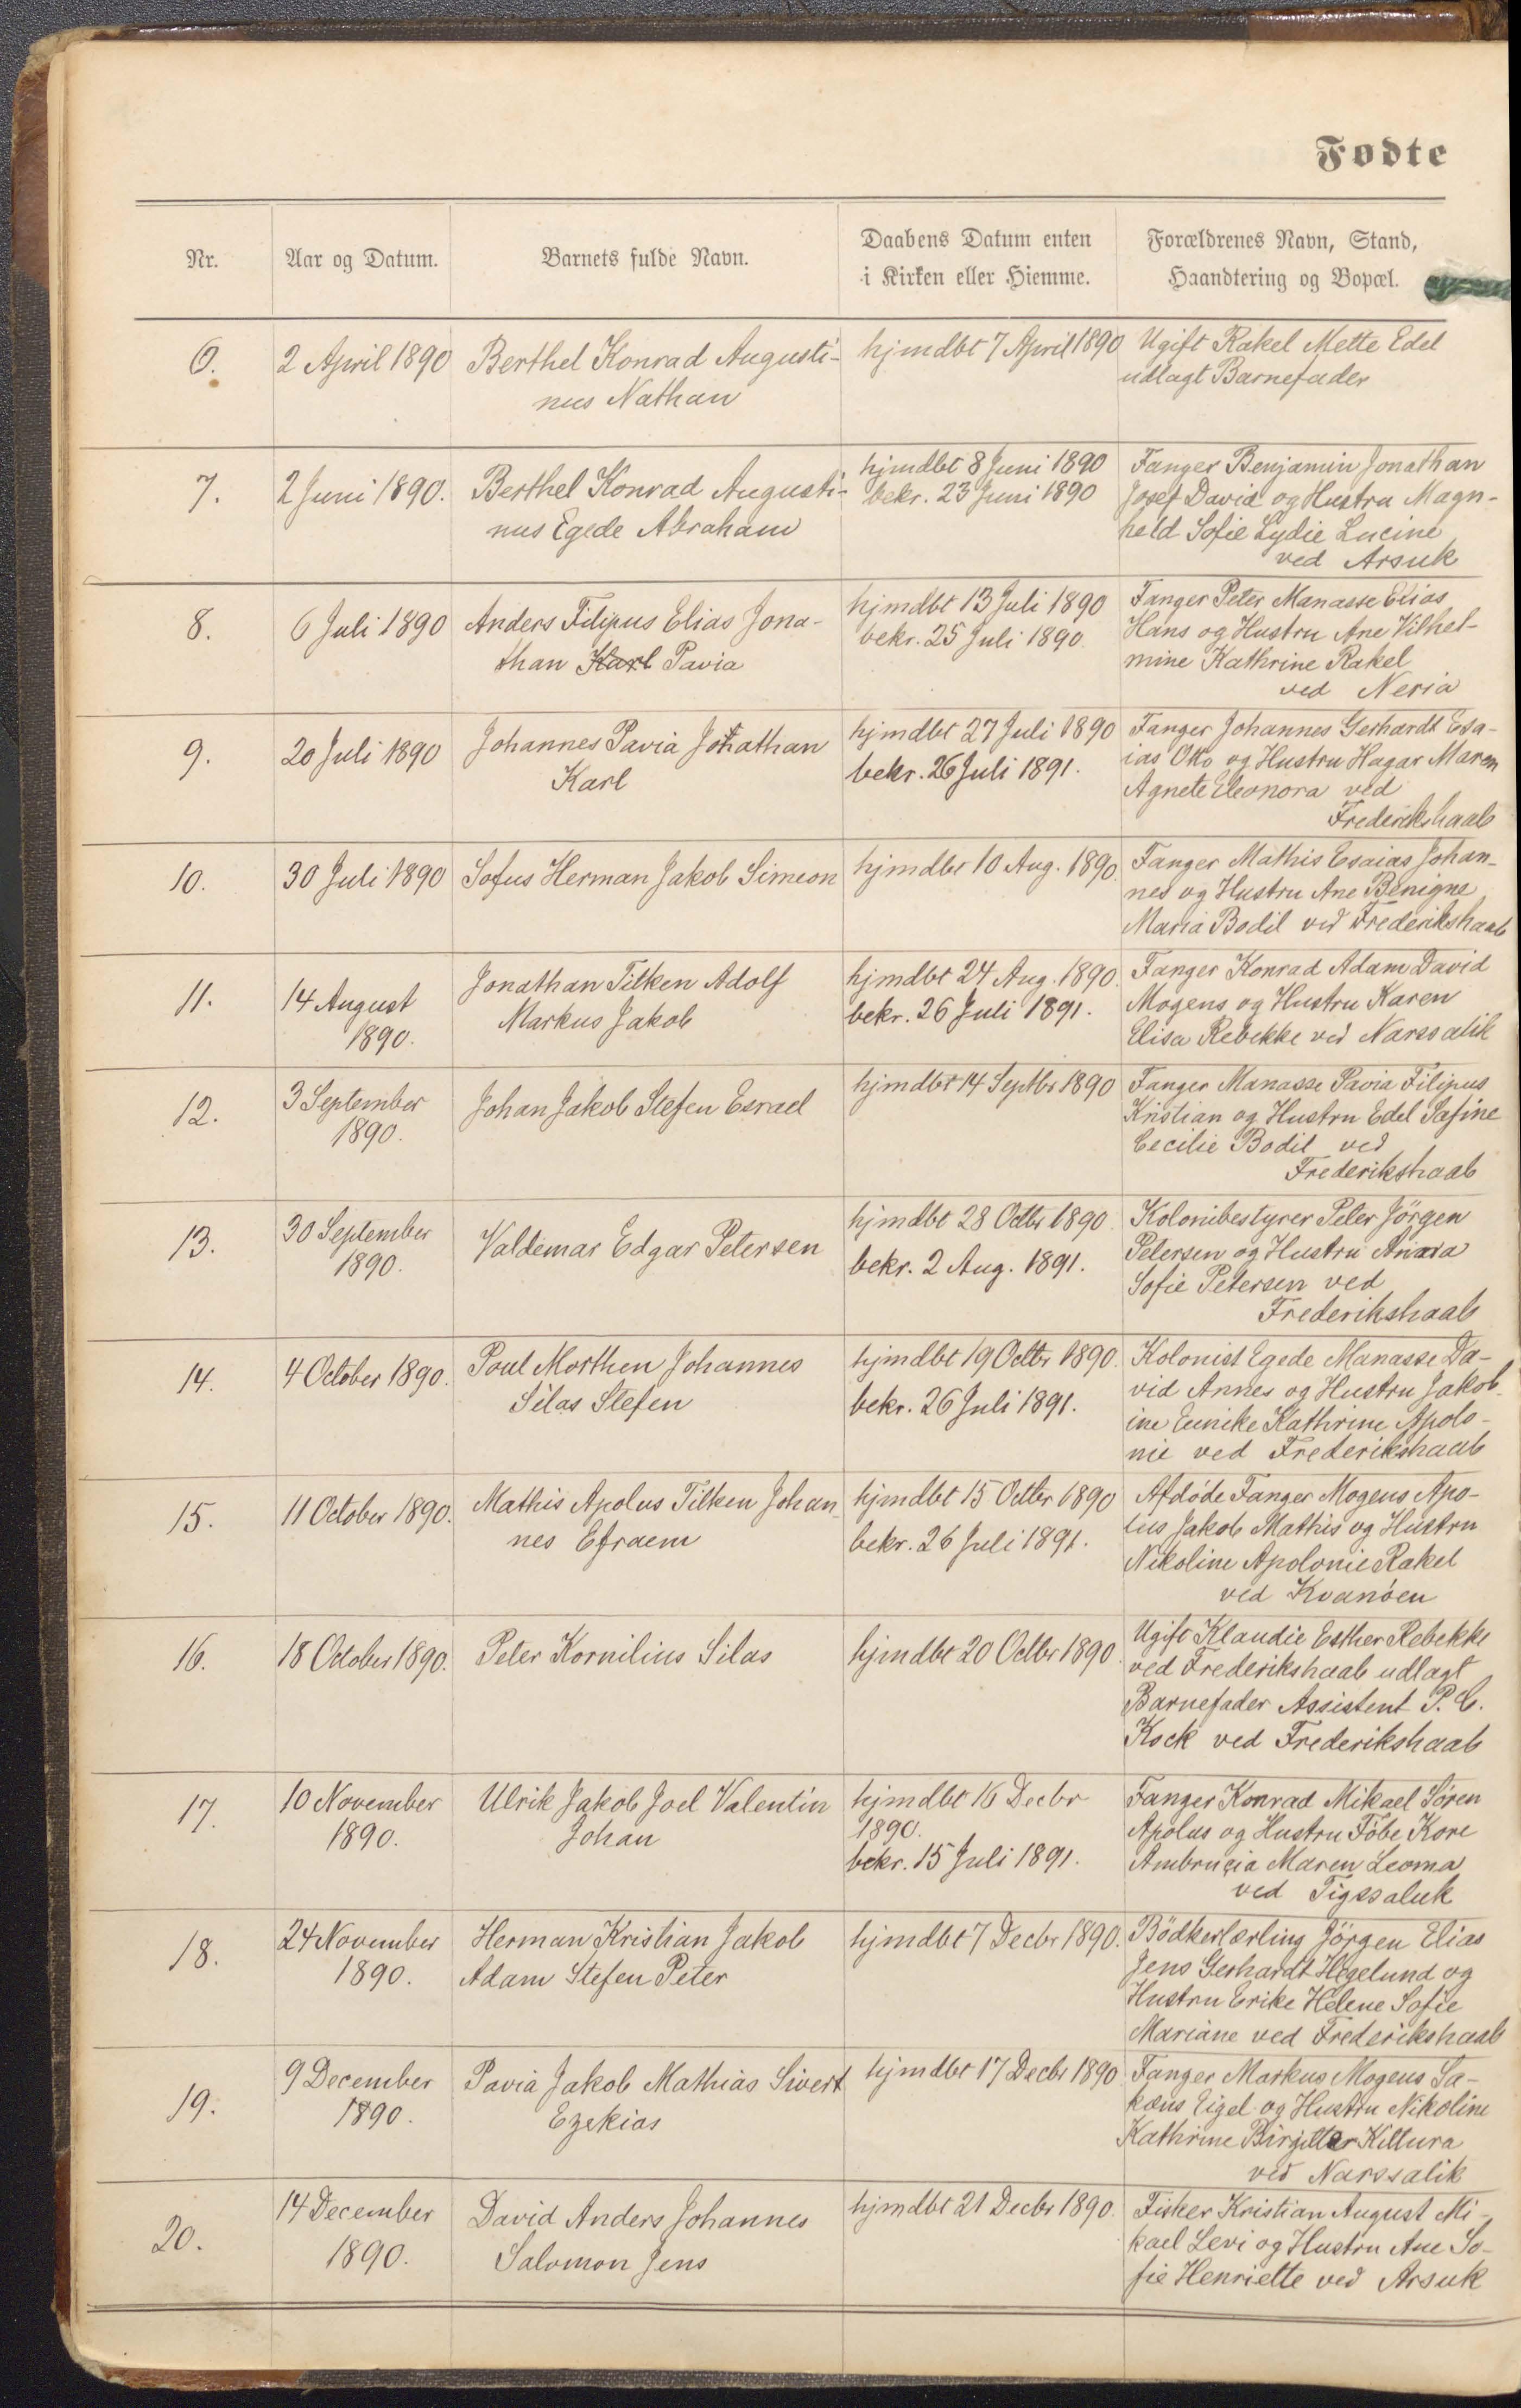 Fødte
Nr.
Aar og Datum.
Barnets fulde Navn.
Daabens Datum enten
i Kirken eller Hiemme.
Forældrenes Navn, Stand,
Haandtering og Bopæl.
6.
2 April 1890
Berthel Konrad Augusti-
nus Nathan
hjmdbt 7 April 1890
Ugift Rakel Mette Edel
udlagt Barnefader
7.
2 Juni 1890.
Berthel Konrad Augusti-
nus Egede Abraham
hjmdbt 8 Juni 1890
bekr. 23 Juni 1890
Fanger Benjamin Jonathan
Josef David og Hustru Magn-
held Sofie Lydie Lucine
ved Arsuk
8.
6 Juli 1890
Anders Filipus Elias Jona-
than Karl Pavia
hjmdbt 13 Juli 1890
bekr. 25 Juli 1890.
Fanger Peter Manasse Elias
Hans og Hustru Ane Vilhel-
mine Kathrine Rakel
ved Neria
9.
20 Juli 1890
Johannes Pavia Jonathan
Karl
hjmdbt 27 Juli 1890
bekr. 26 Juli 1891.
Fanger Johannes Gerhardt Esa-
ias Otto og Hustru Hagar Maren
Agnete Eleonora ved
Frederikshaab
10.
30 Juli 1890
Sofus Herman Jakob Simeon
hjmdbt 10 Aug. 1890.
Fanger Mathis Esaias Johan-
nes og Hustru Ane Benigne
Maria Bodil ved Frederikshaab
11.
14 August
1890.
Jonathan Tilken Adolf
Markus Jakob
hjmdbt 24 Aug. 1890.
bekr. 26 Juli 1891.
Fanger Konrad Adam David
Mogens og Hustru Karen
Elisa Rebekke ved Narssalik
12.
3 September
1890.
Johan Jakob Stefen Esrael
hjmdbt 14 Septbr 1890
Fanger Manasse Pavia Filipus
Kristian og Hustru Edel Safine
Cecilie Bodil ved
Frederikshaab
13.
30 September
1890.
Valdemar Edgar Petersen
hjmdbt 28 Octbr 1890.
bekr. 2 Aug. 1891.
Kolonibestyrer Peter Jörgen
Petersen og Hustru Anna
Sofie Petersen ved
Frederikshaab
14.
4 October 1890.
Poul Morthen Johannes
Silas Stefen
hjmdbt 19 Octbr 1890.
bekr. 26 Juli 1891.
Kolonist Egede Manasse Da-
vid Annes og Hustru Jakob-
ine Eunike Kathrine Apolo-
nie ved Frederikshaab
15.
11 October 1890.
Mathis Apolus Tilken Johan-
nes Efraem
hjmdbt 15 Octbr 1890
bekr. 26 Juli 1891.
Afdøde Fanger Mogens Apo-
lus Jakob Mathis og Hustru
Nikoline Apolonie Rakel
ved Kvanöen
16.
18 October 1890.
Peter Kornilius Silas
hjmdbt 20 Octbr 1890.
Ugift Klaudie Esther Rebekke
ved Frederikshaab udlagt
Barnefader Assistent P. C.
Kock ved Frederikshaab
17.
10 November
1890.
Ulrik Jakob Joel Valentin
Johan
hjmdbt 16 Decbr
1890.
bekr. 15 Juli 1891.
Fanger Konrad Mikael Sören
Apolus og Hustru Föbe Kore
Ambrucia Maren Leoma
ved Tigssaluk
18.
24 November
1890.
Herman Kristian Jakob
Adam Stefen Peter
hjmdbt 7 Decbr 1890.
Bödkerlærling Jörgen Elias
Jens Gerhardt Hegelund og
Hustru Erike Helene Sofie
Mariane ved Frederikshaab
19.
9 December
1890.
Pavia Jakob Mathias Sivert
Ezekias
hjmdbt 17 Decbr 1890
Fanger Markus Mogens Sa-
kæus Eigel og Hustru Nikoline
Kathrine Birgitte Kittura
ved Narssalik
20.
14 December
1890.
David Anders Johannes
Salomon Jens
hjmdbt 21 Decbr 1890.
Fisker Kristian August Mi-
kael Levi og Hustru Ane So-
fie Henriette ved Arsuk